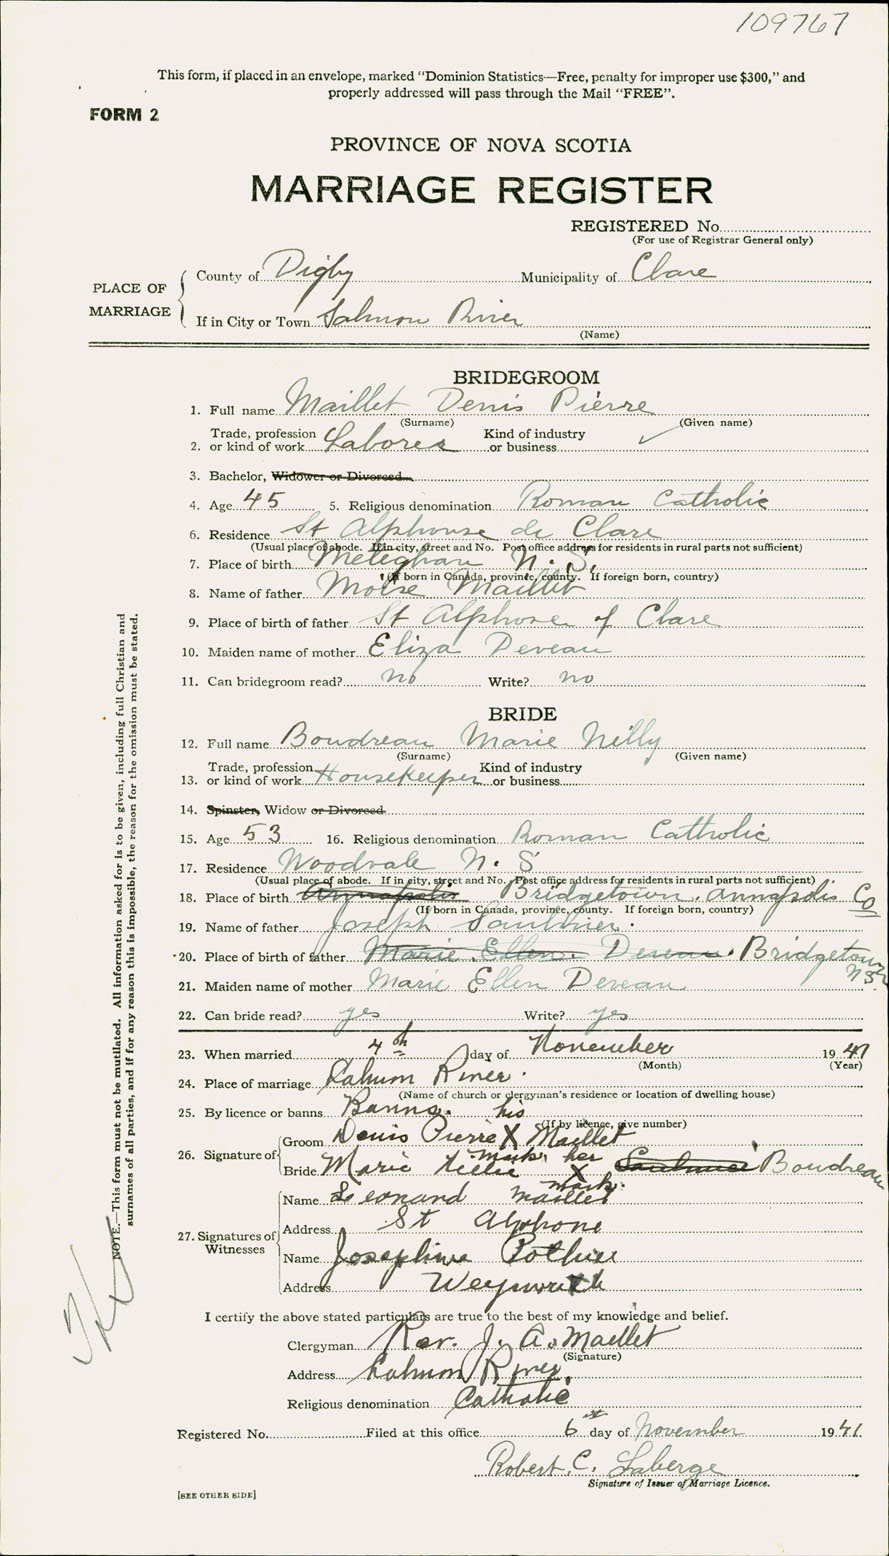 109767
This form, if placed in an envelope, marked "Dominion Statistics—Free, penalty for improper use $300," and
properly addressed will pass through the Mail "FREE".
FORM 2
PROVINCE OF NOVA SCOTIA
MARRIAGE REGISTER
REGISTERED No.
(For use of Registrar General only)
PLACE OF MARRIAGE
County of Digby Municipality of Clare
If in City or Town Salmon River
(Name)
BRIDEGROOM
1. Full name Maillet Denis Pierre
(Surname) (Given name)
2. Trade, profession or kind of work Laborer Kind of industry or business
3. Bachelor, Widower or Divorced
4. Age 45 5. Religious denomination Roman Catholic
6. Residence St Alphonse de Clare
(Usual place of abode. If in city, street and No. Post office address for residents in rural parts not sufficient)
7. Place of birth Meteghan N.S.
(If born in Canada, province, county. If foreign born, country)
8. Name of father Moise Maillet
9. Place of birth of father St Alphose of Clare
10. Maiden name of mother Eliza Deveau
11. Can bridegroom read? no Write? no
BRIDE
12. Full name Boudreau Marie Nilly
(Surname) (Given name)
13. Trade, profession or kind of work Housekeeper Kind of industry or business
14. Spinster, Widow or Divorced
15. Age 53 16. Religious denomination Roman Catholic
17. Residence Woodvale N. S
(Usual place of abode. If in city, street and No. Post office address for residents in rural parts not sufficient)
18. Place of birth Annapolis Bridgetown. Annapolis Co
(If born in Canada, province, county. If foreign born, country)
19. Name of father Joseph Saulnier.
20. Place of birth of father Marie Ellen Deveau. Bridgetown NS.
21. Maiden name of mother Marie Ellen Deveau
22. Can bride read? yes Write? yes
23. When married 4th day of November 1941
(Month) (Year)
24. Place of marriage Salmon River.
(Name of church or clergyman's residence or location of dwelling house)
25. By licence or banns Banns.
(If by licence, give number)
his
26. Signature of Groom Denis Pierre X Maillet
mark. her
Bride Marie Nellie X Saulnier Boudreau
mark.
27. Signatures of Witnesses
Name Leonard Maillet
Address St Alphone
Name Josephine Pothier
Address Weymouth
I certify the above stated particulars are true to the best of my knowledge and belief.
Clergyman Rev. J. A. Maillet
(Signature)
Address Salmon River
Religious denomination Catholic
Registered No. Filed at this office 6th day of November 1941
Robert. C. Laberge
Signature of Issuer of Marriage Licence.
[SEE OTHER SIDE]
NOTE.—This form must not be mutilated. All information asked for is to be given, including full Christian and
surnames of all parties, and if for any reason this is impossible, the reason for the omission must be stated.